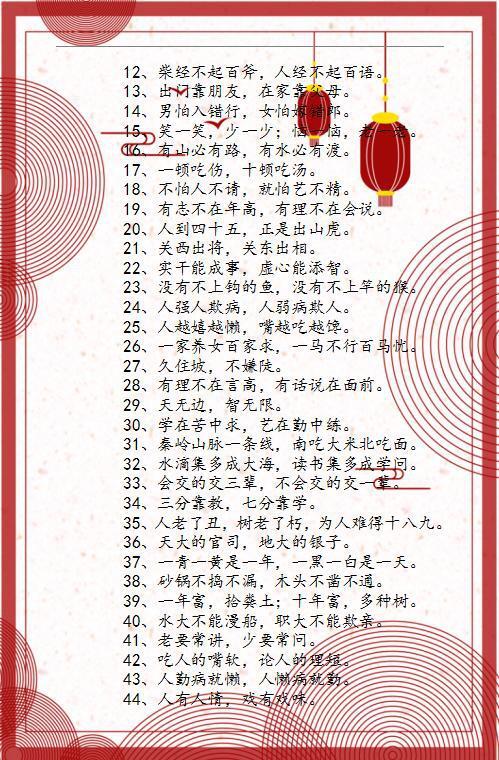 12、柴经不起百斧，人经不起百语。
13、出门靠朋友，在家靠父母。
14、男怕入错行，女怕嫁错郎。
15、笑一笑，少一少；恼一恼，老一老。
16、有山必有路，有水必有渡。
17、一顿吃伤，十顿吃汤。
18、不怕人不请，就怕艺不精。
19、有志不在年高，有理不在会说。
20、人到四十五，正是出山虎。
21、关西出将，关东出相。
22、实干能成事，虚心能添智。
23、没有不上钩的鱼，没有不上竿的猴。
24、人强人欺病，人弱病欺人。
25、人越嬉越懒，嘴越吃越馋。
26、一家养女百家求，一马不行百马忧。
27、久住坡，不嫌陡。
28、有理不在言高，有话说在面前。
29、天无边，智无限。
30、学在苦中求，艺在勤中练。
31、秦岭山脉一条线，南吃大米北吃面。
32、水滴集多成大海，读书集多成学问。
33、会交的交三辈，不会交的交一辈。
34、三分靠教，七分靠学。
35、人老了丑，树老了朽，为人难得十八九。
36、天大的官司，地大的银子。
37、一青一黄是一年，一黑一白是一天。
38、砂锅不捣不漏，木头不凿不通。
39、一年富，拾粪土；十年富，多种树。
40、水大不能漫船，职大不能欺亲。
41、老要常讲，少要常问。
42、吃人的嘴软，论人的理短。
43、人勤病就懒，人懒病就勤。
44、人有人情，戏有戏味。